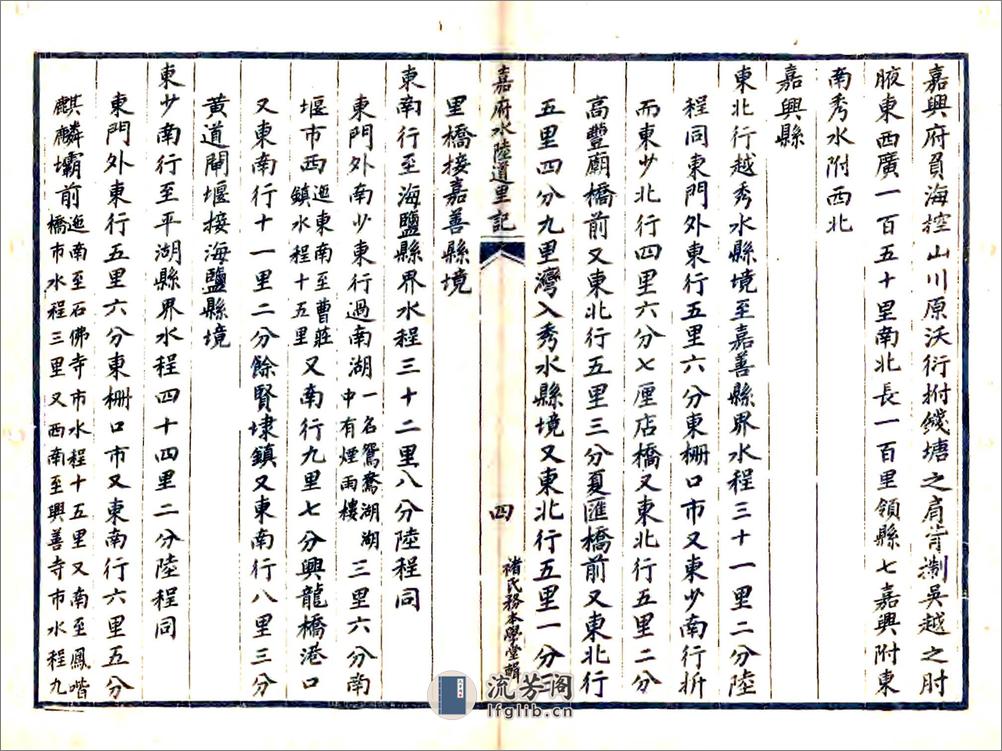 嘉興府負海控山川原沃衍拊錢塘之肩背掣吳越之肘
腋東西廣一百五十里南北長一百里領縣七嘉興附東
南秀水附西北
嘉興縣
東北行越秀水縣境至嘉善縣界水程三十一里二分陸
程同東門外東行五里六分東柵口市又東少南行折
而東少北行四里六分七厘店橋又東北行五里二分
高豐廟橋前又東北行五里三分夏匯橋前又東北行
五里四分九里灣入秀水縣境又東北行五里一分三
嘉府水陸道里記
四
褚氏務本學堂輯
里橋接嘉善縣境
東南行至海鹽縣界水程三十二里八分陸程同
東門外南少東行過南湖一名鴛鴦湖湖中有煙雨樓三里六分南
堰市西迤東南至曹莊鎮水程十五里又南行九里七分興龍橋港口
又東南行十一里二分餘賢埭鎮又東南行八里三分
黃道閘堰接海鹽縣境
東少南行至平湖縣界水程四十四里二分陸程同
東門外東行五里六分東柵口市又東南行六里五分
麒麟壩前迤南至石佛寺市水程十五里又南至鳳喈橋市水程三里又西南至興善寺市水程九
流芳阁
lfglib.cn